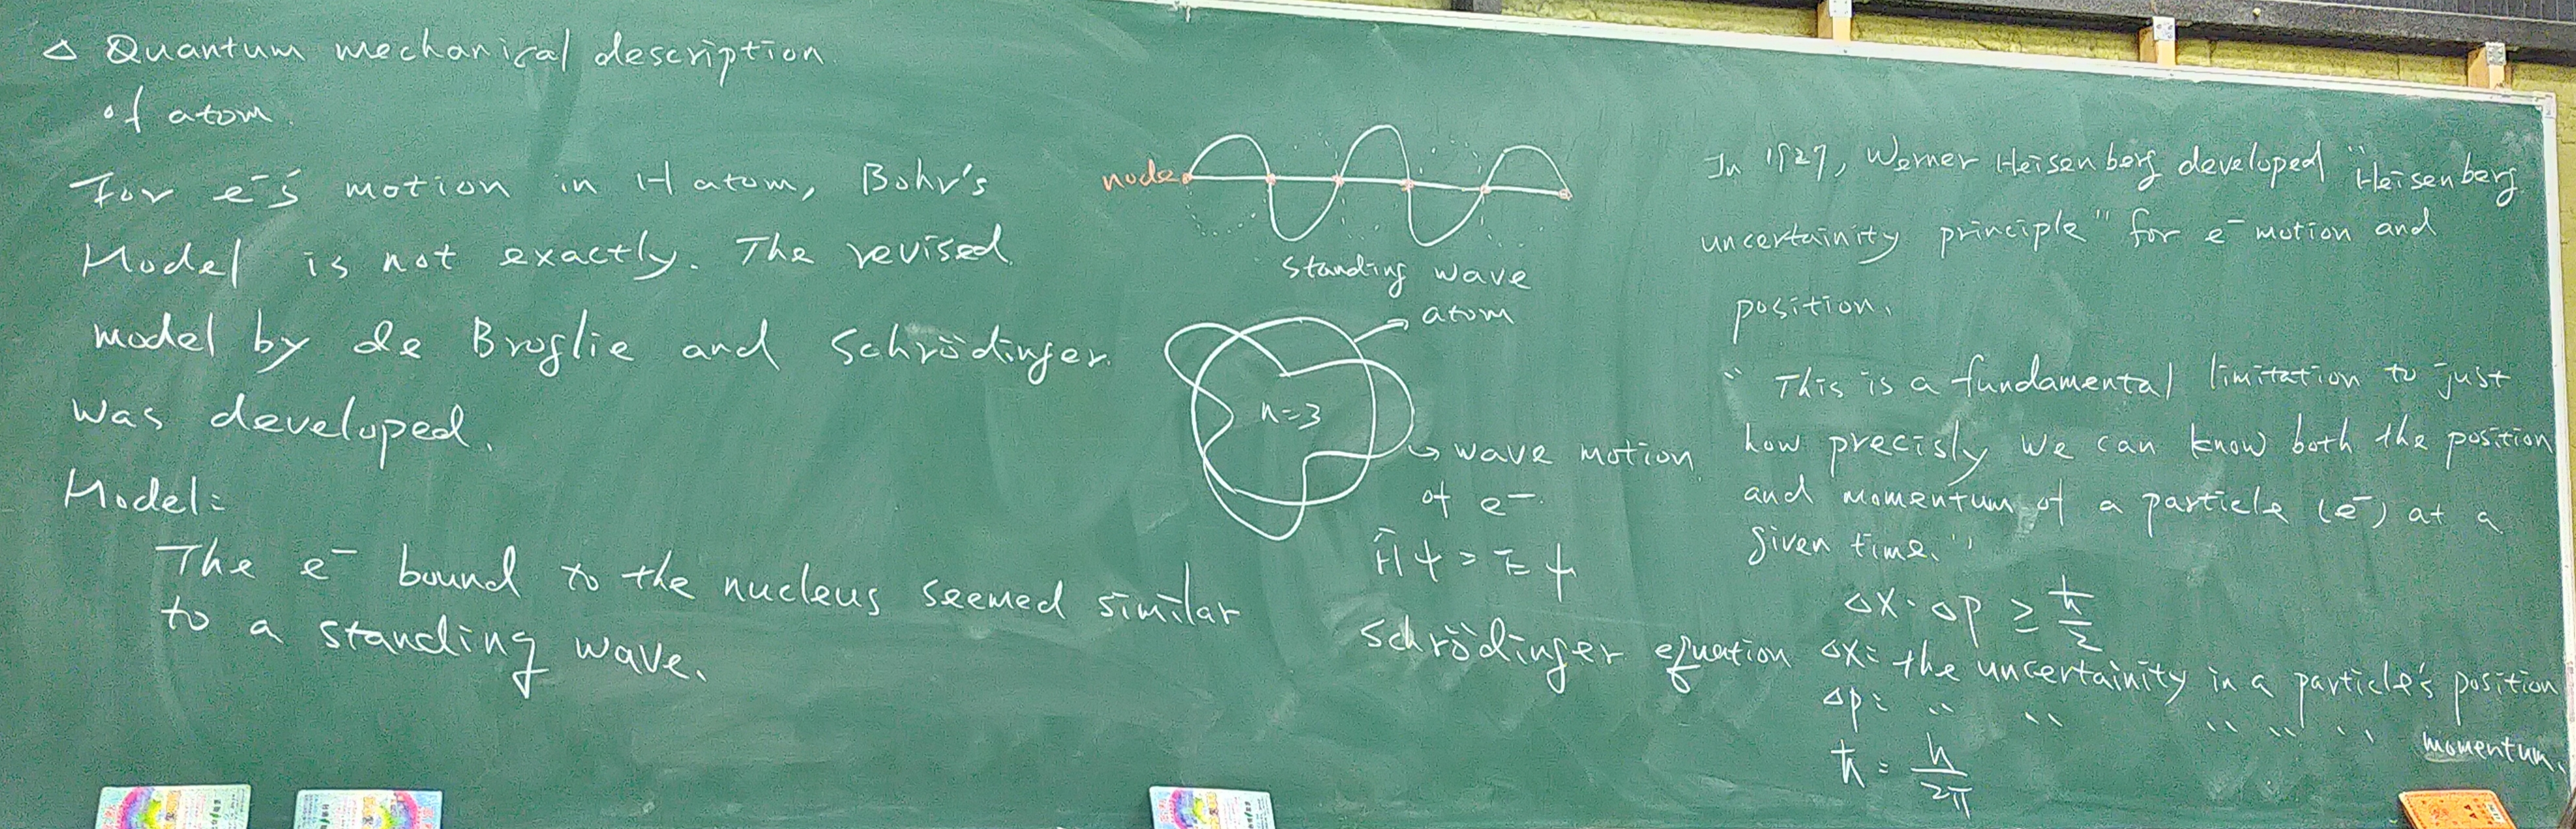 △ Quantum mechanical description
of atom.
For e⁻'s motion in H atom, Bohr's
Model is not exactly. The revised
model by de Broglie and Schrödinger
was developed.
Model:
The e⁻ bound to the nucleus seemed similar
to a standing wave.
node
standing wave
atom
n=3
wave motion
of e⁻.
Ĥψ = Eψ
Schrödinger equation
In 1927, Werner Heisenberg developed "Heisenberg
uncertainity principle" for e⁻ motion and
position.
"This is a fundamental limitation to just
how precisly we can know both the position
and momentum of a particle (e⁻) at a
given time."
△x · △p ≥ ħ/2
△x = the uncertainity in a particle's position
△p = 〃 〃 〃 〃 〃 momentum.
ħ = h/2π